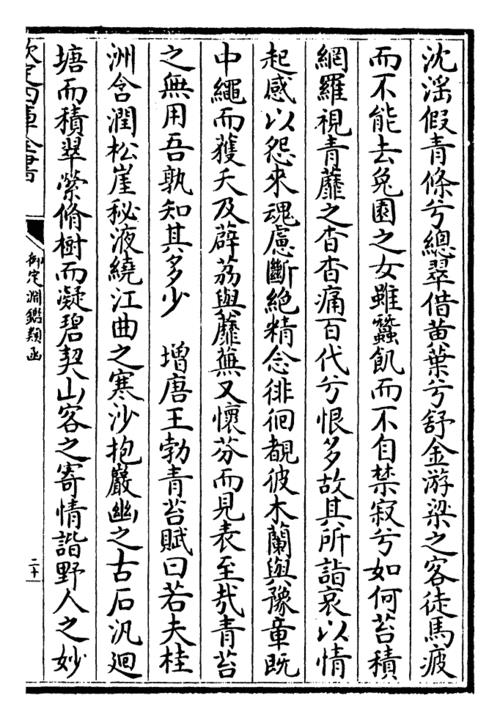 沈滛假青條兮總翠借黄葉兮舒金游梁之客徒馬疲
而不能去兔園之女雖蠶飢而不自禁寂兮如何苔積
網羅視青蘼之杳杳痛百代兮恨多故其所詣哀以情
起感以怨來魂慮斷絕精念徘徊覩彼木蘭與豫章旣
中繩而獲夭及薜荔與蘼蕪又懷芬而見表至㢤青苔
之無用吾孰知其多少　增唐王勃青苔賦曰若夫桂
洲含潤松崖秘液繞江曲之寒沙抱巖幽之古石汎廻
塘而積翠縈脩樹而凝碧契山客之寄情諧野人之妙
欽定四庫全書
御定淵鑑類函
二十